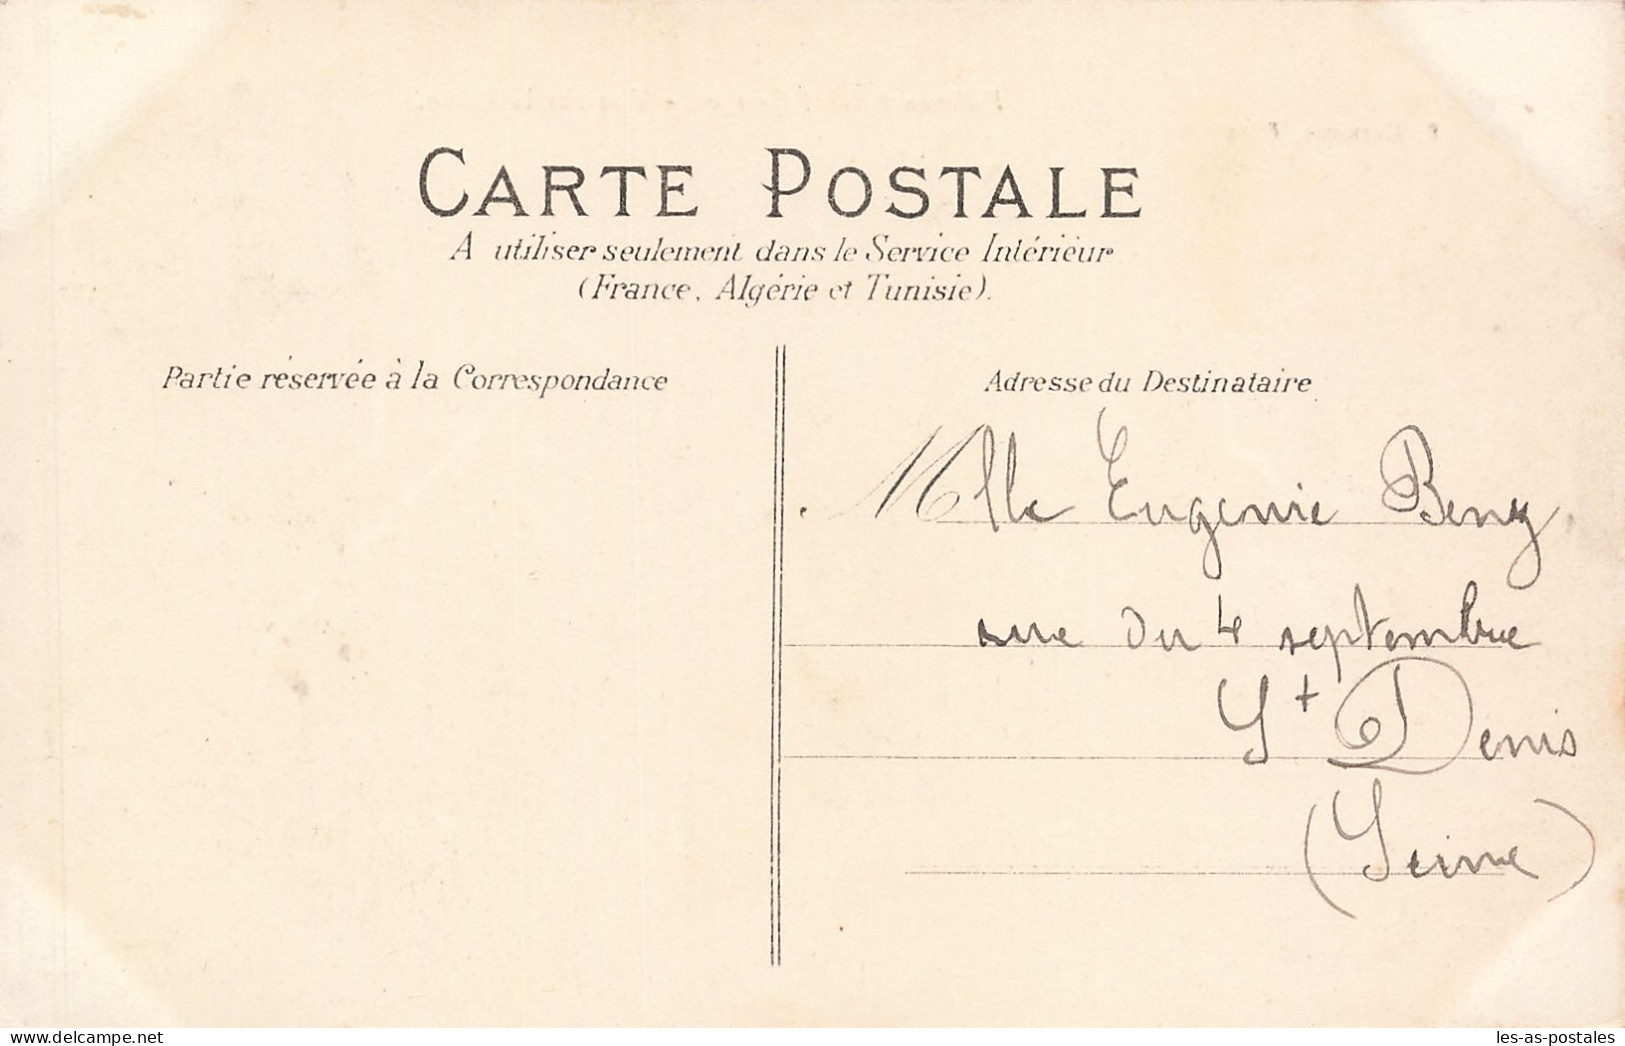 CARTE POSTALE
A utiliser seulement dans le Service Intérieur
(France, Algérie et Tunisie).
Partie réservée à la Correspondance
Adresse du Destinataire
Mlle Eugenie Benz
rue du 4 septembre
St Denis
(Seine)
delcampe.net
les-as-postales